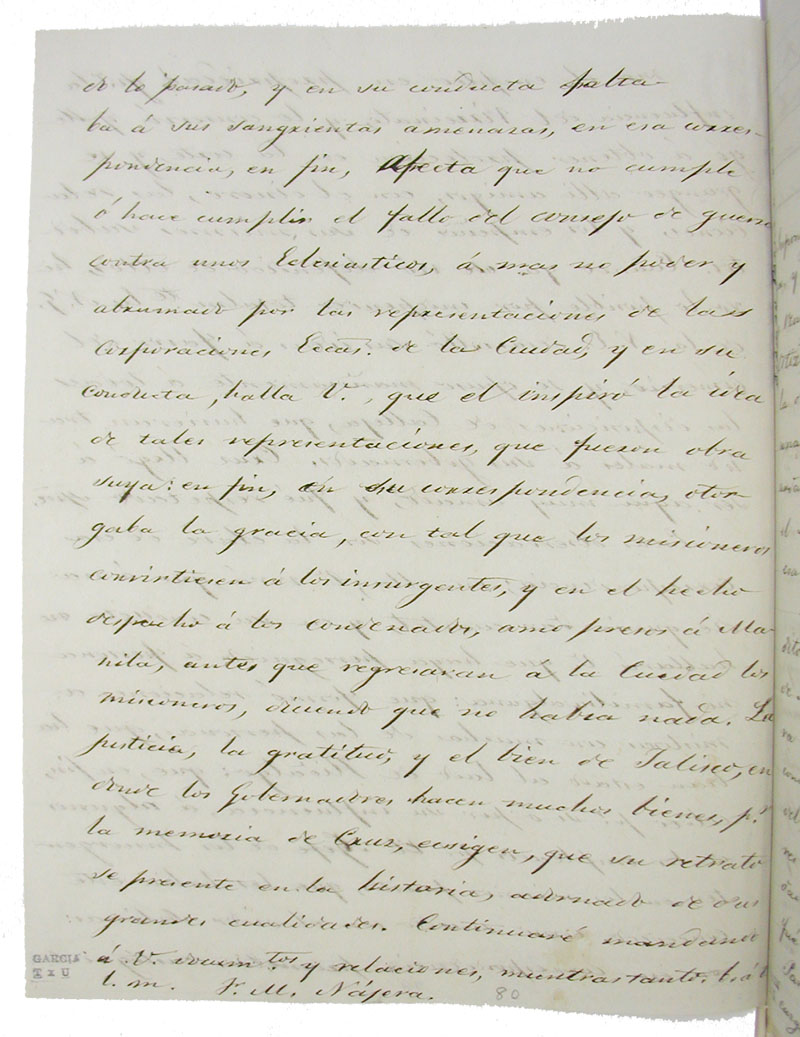 de lo pasado, y en su conducta falta-
ba á sus sangrientas amenazas, en esa corres-
pondencia, en fin, afecta que no cumple
ó hace cumplir el fallo del consejo de guerra
contra unos Eclesiasticos, á mas no poder y
abrumado por las representaciones de las
Corporaciones Eccas. de la Ciudad, y en su
conducta, halla V., que el inspiró la idea
de tales representaciones, que fueron obra
suya: en fin, en su correspondencia, otor-
gaba la gracia, con tal que los misioneros
convirtiesen á los insurgentes, y en el hecho
despacho á los condenados, como presos á Ma-
nila, antes que regresaran á la Ciudad los
misioneros, diciendo que no habia nada. La
justicia, la gratitud, y el bien de Jalisco, en
donde los Gobernadores hacen muchos bienes, pr.
la memoria de Cruz, ecsigen, que su retrato
se presente en la historia, adornado de sus
grandes cualidades. Continuaré mandando
á V. docum.tos y relaciones, mientras tanto. b. á V.
l. m. F. M. Nájera.
80
GARCIA